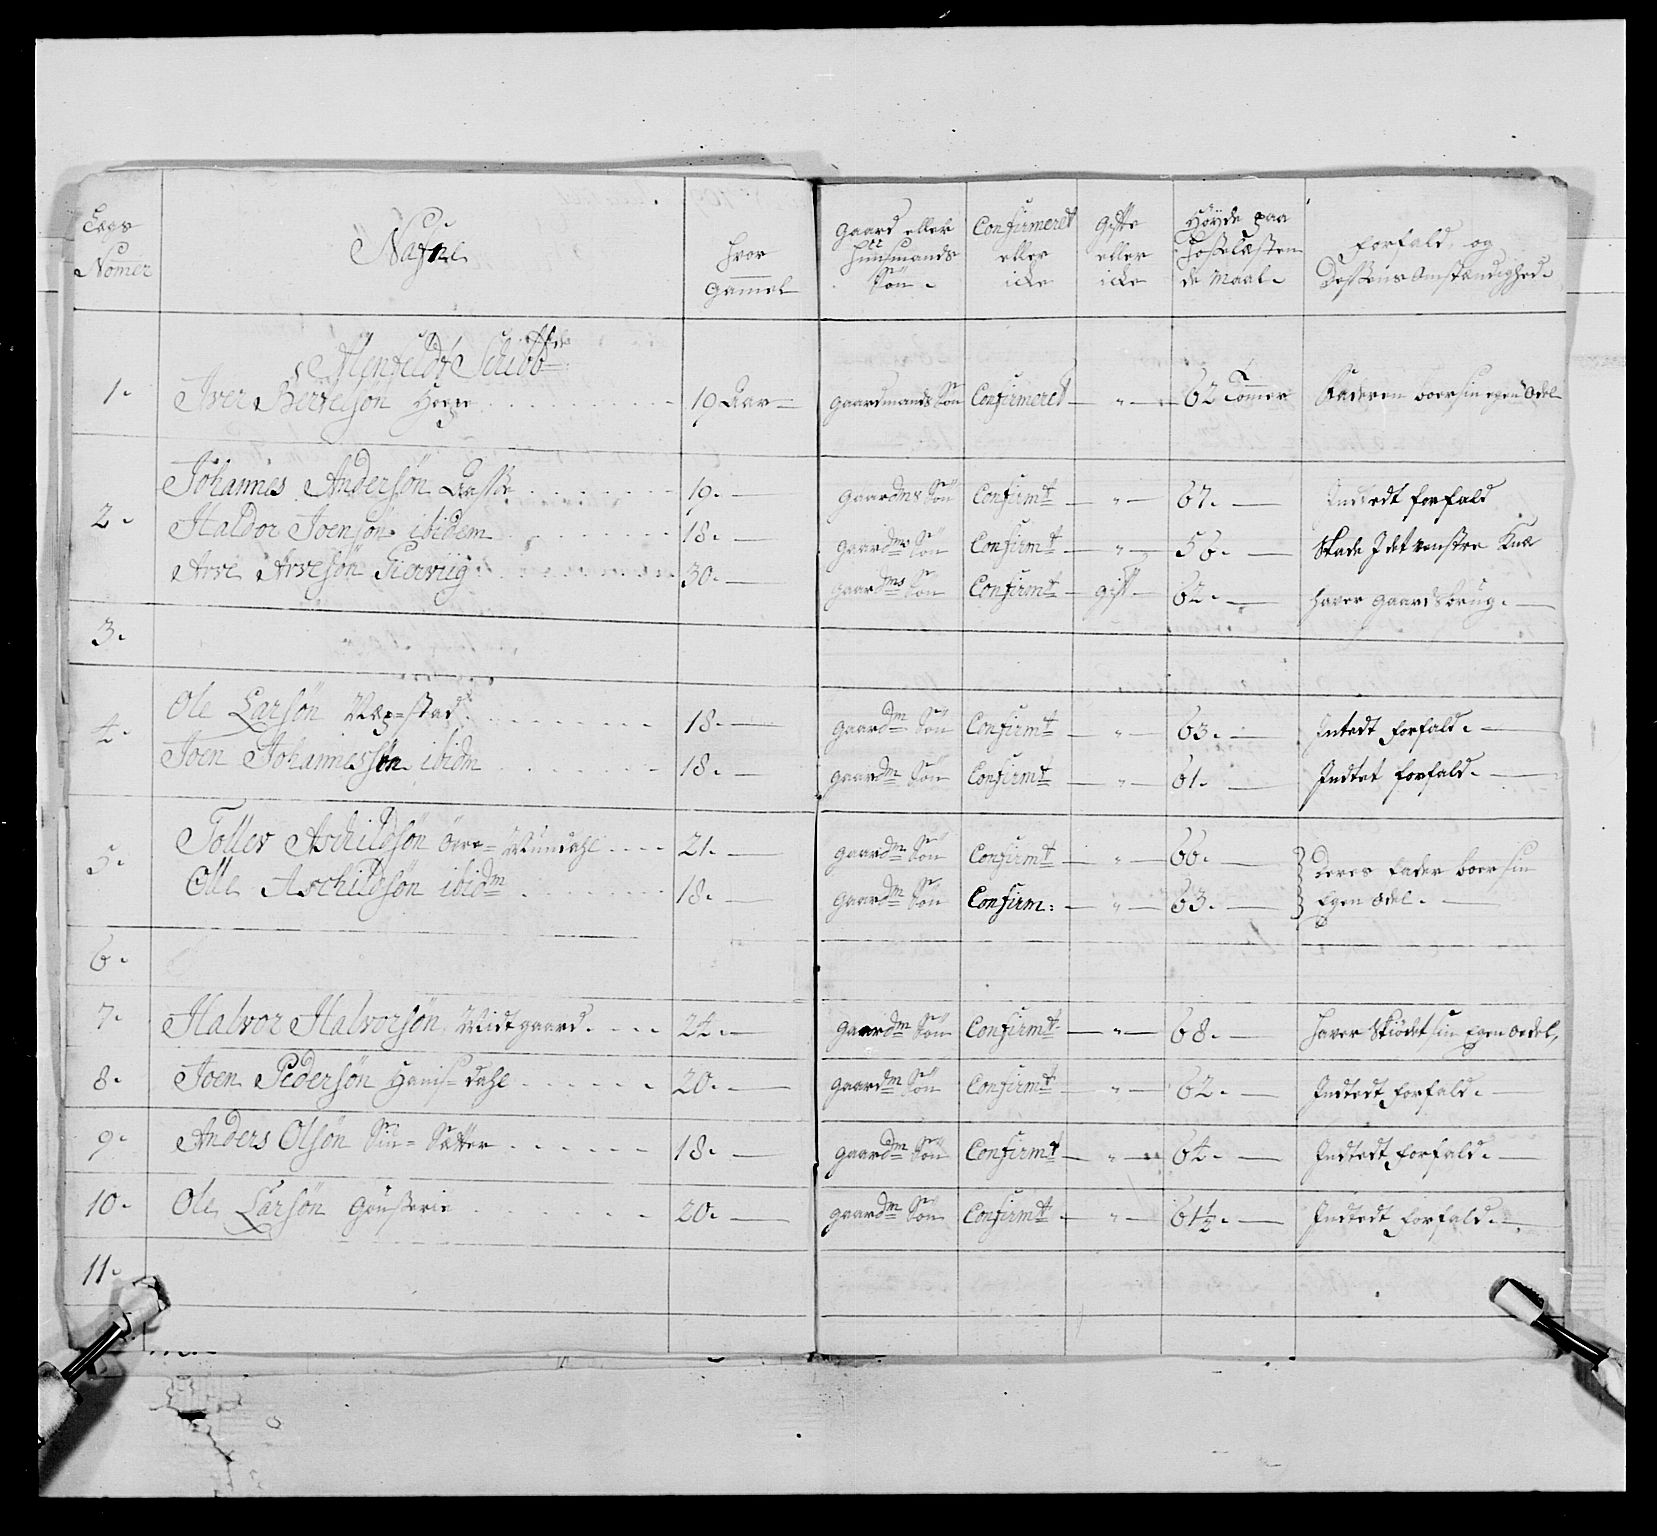 Lægs Nomer
Nafne
hvor gammel
Gaard eller Huusmands Søn.
Confirmeret eller icke
Gifte eller icke
Høyde paa Hoseleesten de Maal.
Forfald og Dessens Omstændighed.
Schibbrede
1. Iver Søn 19 Aar Gaardmands Søn Confirmeret " 62 Tommer Faderen boer sin egen Odel
2. Johannes Andersøn 19. Gaardms Søn Confirmt " 67. Indtedt forfald
Haldor Joensøn ibidem 18. Gaardms Søn Confirmt " 56. Skade I det venstre Knæ
Arve Arvesøn 30. Gaardms Søn Confirmt gift 62. haver gaardsbrug.
3.
4. Ole Larsøn 18 Gaardm Søn Confirmt " 63. Intedt forfald.
Joen Johannessøn ibidm 18. Gaardm Søn Confirmt " 61. Indtet forfald.
5. Tollev Aschildsøn Øvre= 21. Gaardm Søn Confirmt " 66. Deres Fader boer sin
Olle Aschildsøn ibidm 18. Gaardm Søn Confirm: " 63. Egen odel.
6.
7. Halvor Halvorsøn Midtgaard. 24. Gaardm Søn Confirmt " 68. haver Skiødet sin Egen oedel,
8. Joen Pedersøn 20. Gaardm Søn Confirmt " 62. Indtedt forfald.
9. Anders Olsøn 18. Gaardm Søn Confirmt " 64. Indtedt forfald.
10. Ole Larsøn 20. Gaardm Søn Confirmt " 61½. Indtedt forfald.
11.